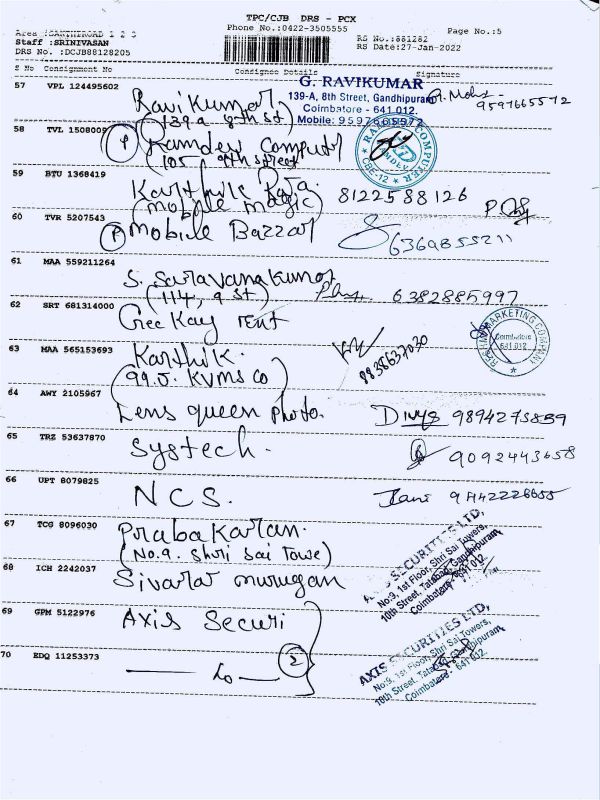 TPC/CJB DRS - PCX
Phone No.:0422-3505555
Page No.:5
Area :SANTHIROAD 1 2 3
Staff :SRINIVASAN
DRS No. :DCJB88128205
RS No.:881282
RS Date:27-Jan-2022
S No Consignment No Consignee Details Signature
57 VPL 124495602
Ravi Kumar
(139-a 8th st)
G. RAVIKUMAR
139-A, 8th Street, Gandhipuram
Coimbatore - 641 012.
Mobile: 9597665972
9597665972
58 TVL 1508009
P Ramdev Computer
105, 9th street
COMPUTER
CBE-12
59 BTU 1368419
Karthik Raja.
(mobile magic)
8122588126
60 TVR 5207543
P Mobile Bazzar
6369855211
61 MAA 559211264
S. Saravana Kumar
(114, 9 st)
6382885997
62 SRT 681314000
Gee Kay rent
MARKETING COMPANY
Coimbatore
641 012
63 MAA 565153693
Karthik.
(99.J. KVMS Co)
8838637030
64 AWY 2105967
Lens queen photo.
Divya 9894275859
65 TRZ 53637870
Systech.
9092443658
66 UPT 8079825
NCS.
Jani 9442226655
67 TCG 8096030
Prabakaran.
(No.9. Shri Sai Towe)
68 ICH 2242037
Sivarar murugan
AXIS SECURITIES LTD,
No:9, 1st Floor, Shri Sai Towers,
10th Street, Tatabad, Gandhipuram,
Coimbatore - 641 012.
69 GPM 5122976
Axis Securi
70 EDQ 11253373
— do —
2
AXIS SECURITIES LTD,
No:9, 1st Floor, Shri Sai Towers,
10th Street, Tatabad, Gandhipuram,
Coimbatore - 641 012.